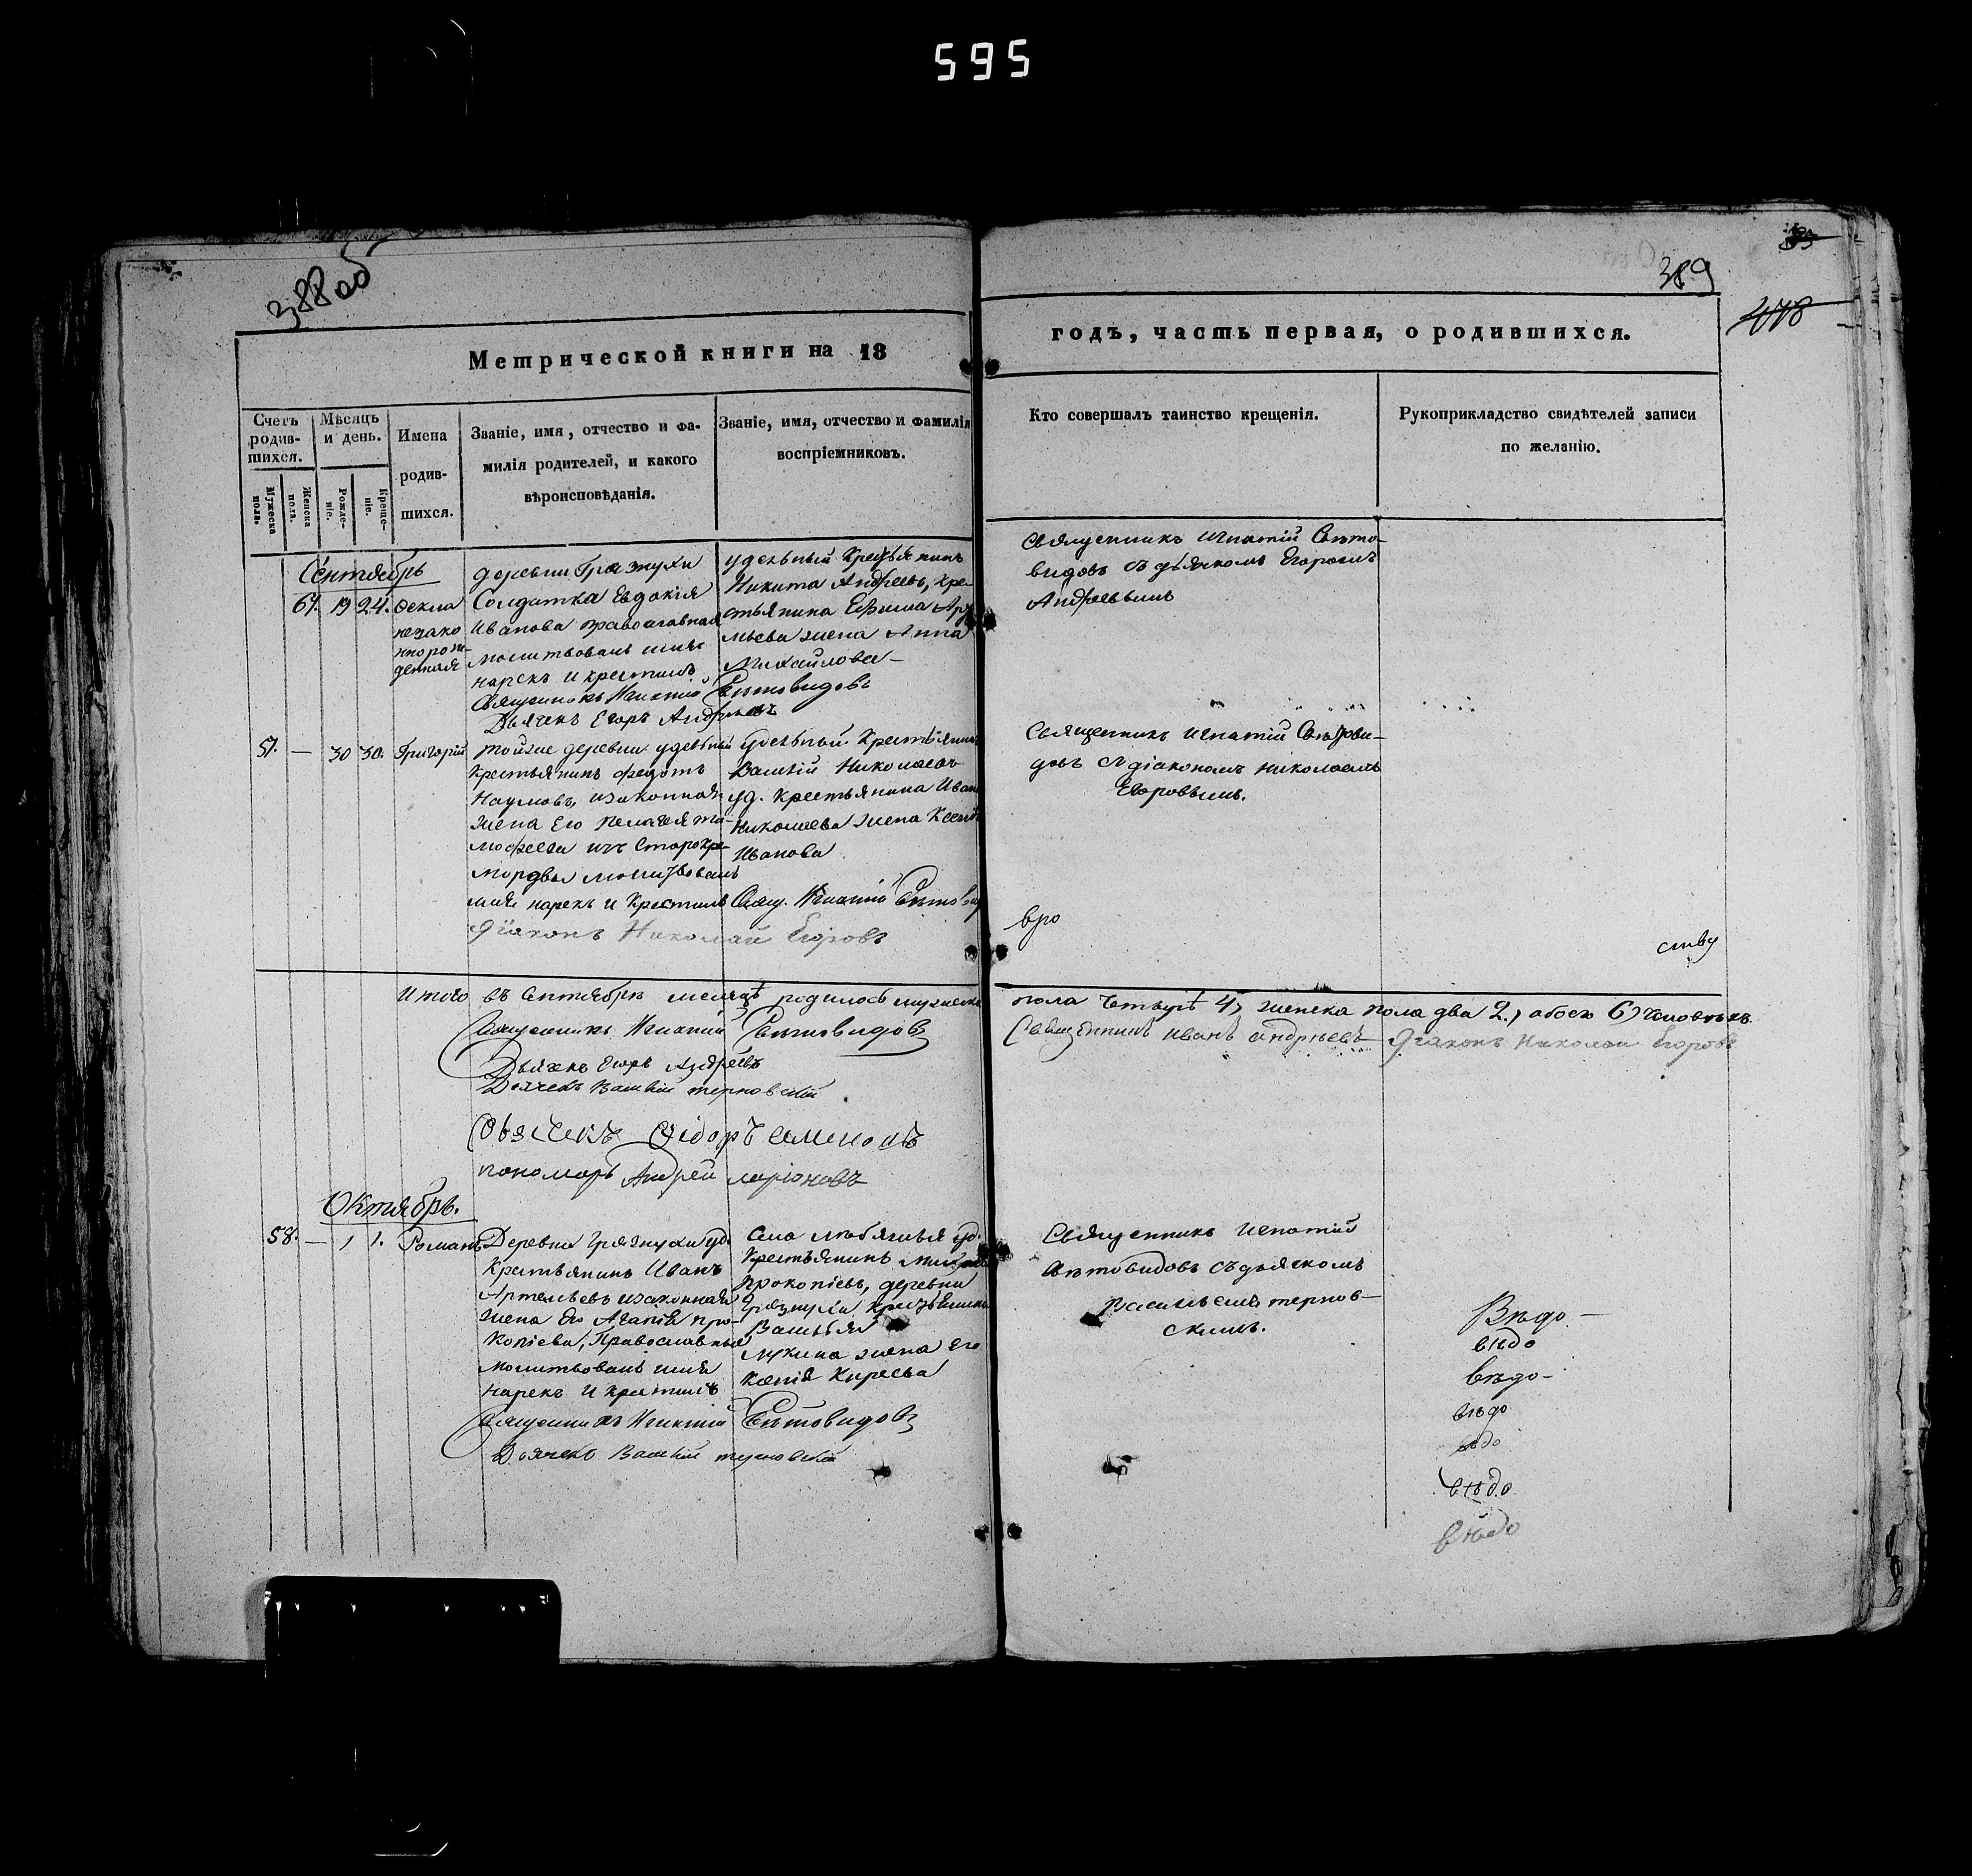 595
388 об
389
418
Метрической книги на 18
годъ, часть первая, о родившихся.
Счетъ родив-шихся.
Мужеска пола.
Женска пола.
Мѣсяцъ и день.
Рожде-ніе.
Креще-ніе.
Имена родив-шихся.
Званіе, имя, отчество и фа-
милія родителей, и какого
вѣроисповѣданія.
Званіе, имя, отчество и фамилія
воспріемниковъ.
Кто совершалъ таинство крещенія.
Рукоприкладство свидѣтелей записи
по желанію.
Сентябрь
19 24. Фекла
незако
ннорож-
денная
деревни Грязнухи
Солдатка Евдокія
Иванова православная
молитвовалъ имя
нарекъ и крестилъ
Священникъ Игнатій Свѣтовидовъ
Дьячекъ Егоръ Андреевъ
удельный Крестьянинъ
Никита Андреевъ, кре-
стьянина Ефима Ар
мьева жена Анна
Михайлова
Священникъ Игнатій Свѣто-
видовъ съ дьячкомъ Егоромъ
Андреевымъ
57. — 30 30. Григорій
тойже деревни удельный
Крестьянинъ Федотъ
Наумовъ, изаконная
жена его Пелагея Ти-
мофеева изъ Старокре-
мордвы молитвовалъ
имя нарекъ и крестилъ Свящ. Игнатій Свѣтовид
Діаконъ Николай Егоровъ
удельный Крестьянинъ
Василій Николаевъ
уд. крестьянина Иван
Николаева жена Ксенія
Иванова
Священникъ Игнатій Свѣтови-
довъ съ діакономъ Николаемъ
Егоровымъ.
вро
ству
Итого въ Сентябрѣ месяцѣ родилось мужеска
пола четырѣ 4, женска пола два 2, обоего 6) человѣкъ.
Священникъ Игнатій Свѣтовидовъ
Священникъ Иванъ Андреевъ Діаконъ Николай Егоровъ
Дьячекъ Егоръ Андреевъ
Дьячекъ Василій Терновскій
Дьячекъ Ѳедоръ Семеновъ
пономарь Андрей Ларіоновъ
Октябрь.
58. — 1 1. Романъ
Деревни Грязнухи уд.
Крестьянинъ Иванъ
Артемьевъ изаконная
жена его Агапія Про-
копіева, Православные
молитвовалъ имя
нарекъ и крестилъ
Священникъ Игнатій Свѣтовидовъ
Дьячекъ Василій Терновскій
Крестьянинъ
Прокопіевъ, деревни
Грязнухи крестьянина
Василья
Лукина жена его
Ксенія Киреева
Священникъ Игнатій
Свѣтовидовъ съ дьячкомъ
Васильемъ Тернов-
скимъ.
Вѣдо
вѣдо
вѣдо
вѣдо
вѣдо
вѣдо
вѣдо